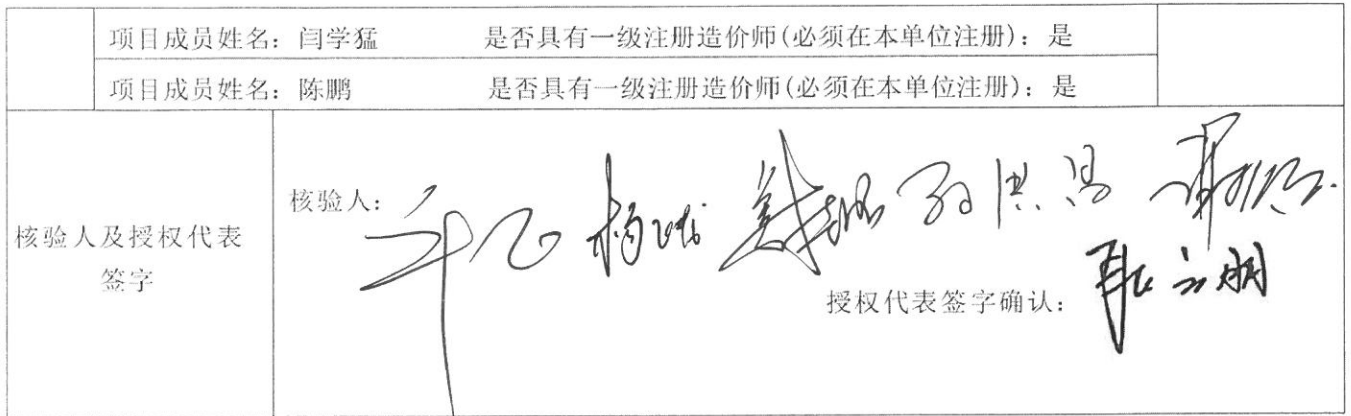 项目成员姓名：闫学猛 是否具有一级注册造价师(必须在本单位注册)：是
项目成员姓名：陈鹏 是否具有一级注册造价师(必须在本单位注册)：是
核验人及授权代表
签字
核验人：
授权代表签字确认：